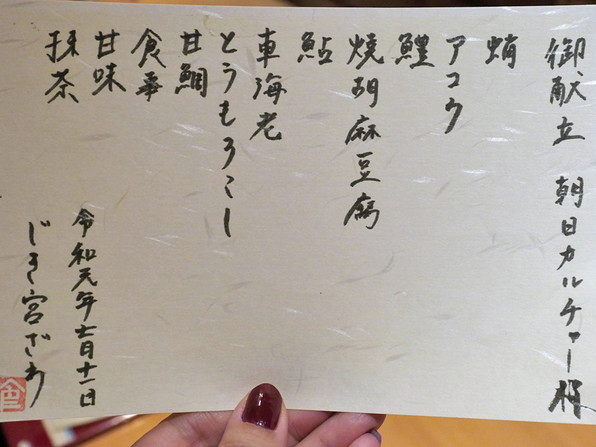 御献立 朝日カルチャー様
蛸
アコウ
鱧
焼胡麻豆腐
鮎
車海老
とうもろこし
甘鯛
食事
甘味
抹茶
令和元年七月十一日
じき宮ざわ